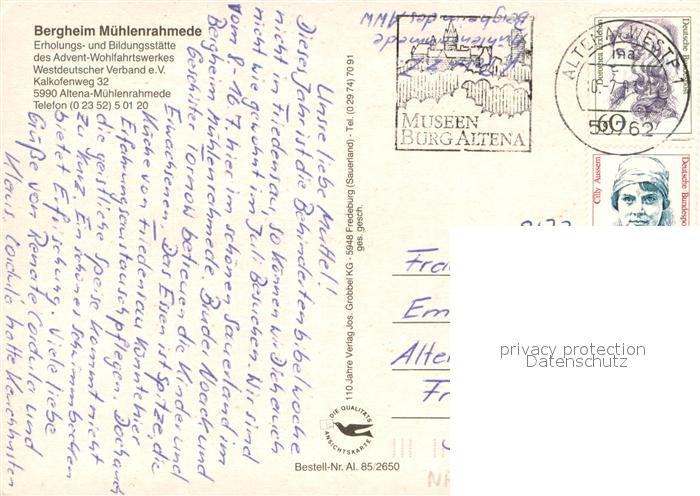 Bergheim Mühlenrahmede
Erholungs- und Bildungsstätte
des Advent-Wohlfahrtswerkes
Westdeutscher Verband e.V.
Kalkofenweg 32
5990 Altena-Mühlenrahmede
Telefon (0 23 52) 5 01 20
Unse liebe Mutter!
Dieses Jahr ist die Behindertenbibelwoche
nicht in Friedensau, so können wir Dich auch
nicht wie gewohnt im Juli Besuchen. Wir sind
vom 8-16.7. hier im schönen Sauerland im
Bergheim Mühlenrahmede. Bruder Noack und
Geschwister Tornow betreuen die Kinder und
Erwachsenen. Das Essen ist spitze, die
Küche von Friedensau könnte hier
Erfahrungsaustausch pflegen. Doch auch
die geistliche Speise kommt nicht
zu kurz. Ein schönes schwimmbecken
bietet Erfrischung. Viele liebe
Grüße von Renate Cordula und
Klaus. Cordula hätte
110 Jahre Verlag Jos. Grobbel KG - 5948 Fredeburg (Sauerland) - Tel. (0 29 74) 70 91
ges. gesch.
DIE QUALITÄTS
ANSICHTSKARTE
Bestell-Nr. Al. 85/2650
Mühlenrahmede
Bergheim des AWW
MUSEEN
BURG ALTENA
ALTENA, WESTF 1
5990762
60
Deutsche Bundespost
Cilly Aussem
Deutsche Bundespost
Fra
Em
Alten
Fr
privacy protection
Datenschutz